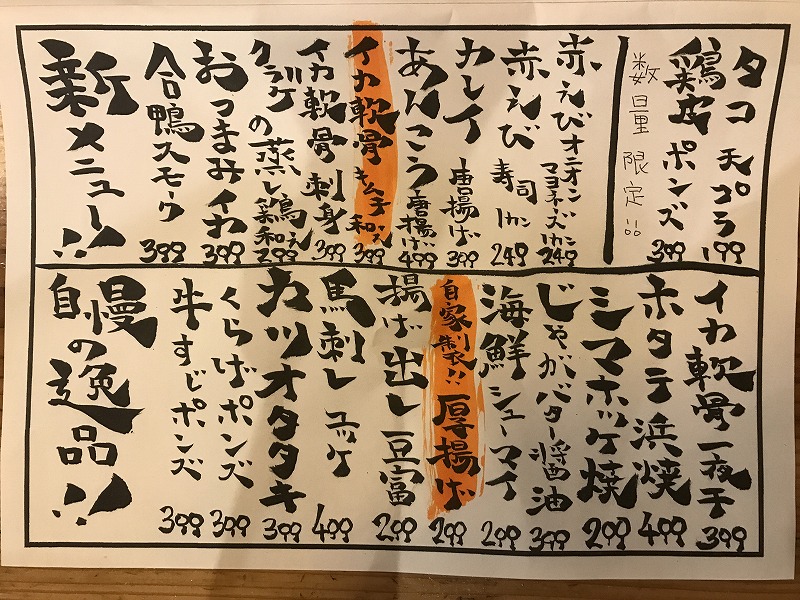 タコ天プラ 199
鶏皮ポンズ 399
数量限定!!
赤えびオニオンマヨネーズ1カン 249
赤えび寿司1カン 249
カレイ唐揚げ 399
あんこう唐揚げ 499
イカ軟骨キムチ和え 399
イカ軟骨刺身 399
クラゲの蒸し鶏和え 299
おつまみイカ 399
合鴨スモーク 399
新メニュー!!
イカ軟骨一夜干 399
ホタテ浜焼 499
シマホッケ焼 299
じゃがバター醤油 399
海鮮シューマイ 299
自家製!!厚揚げ 299
揚げ出し豆富 299
馬刺しユッケ 499
カツオタタキ 399
くらげポンズ 399
牛すじポンズ 399
自慢の逸品!!